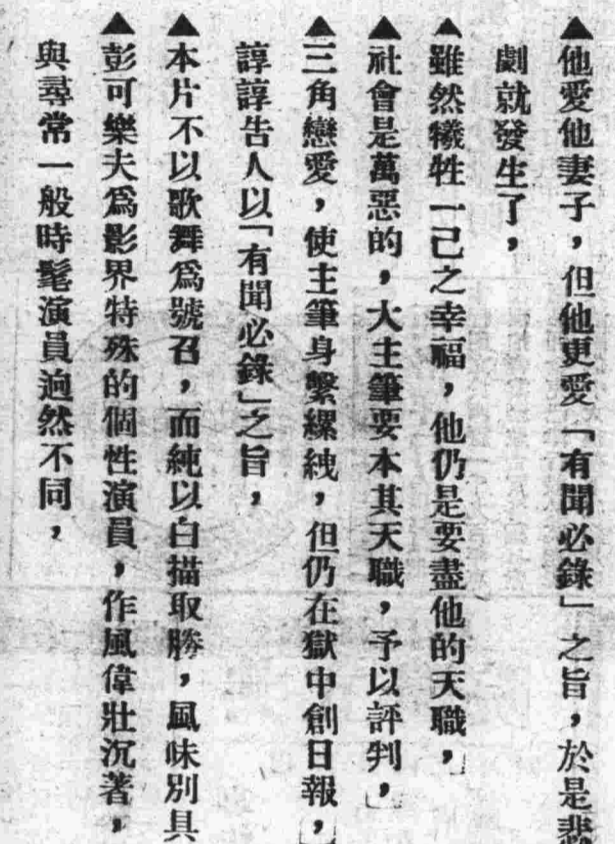 ▲他愛他妻子，但他更愛「有聞必錄」之旨，於是悲
劇就發生了，
▲雖然犧牲一己之幸福，他仍是要盡他的天職，
▲社會是萬惡的，大主筆要本其天職，予以評判，
▲三角戀愛，使主筆身繫縲絏，但仍在獄中創日報，
諄諄告人以「有聞必錄」之旨，
▲本片不以歌舞爲號召，而純以白描取勝，風味別具
▲彭可樂夫爲影界特殊的個性演員，作風偉壯沉著，
與尋常一般時髦演員逈然不同，